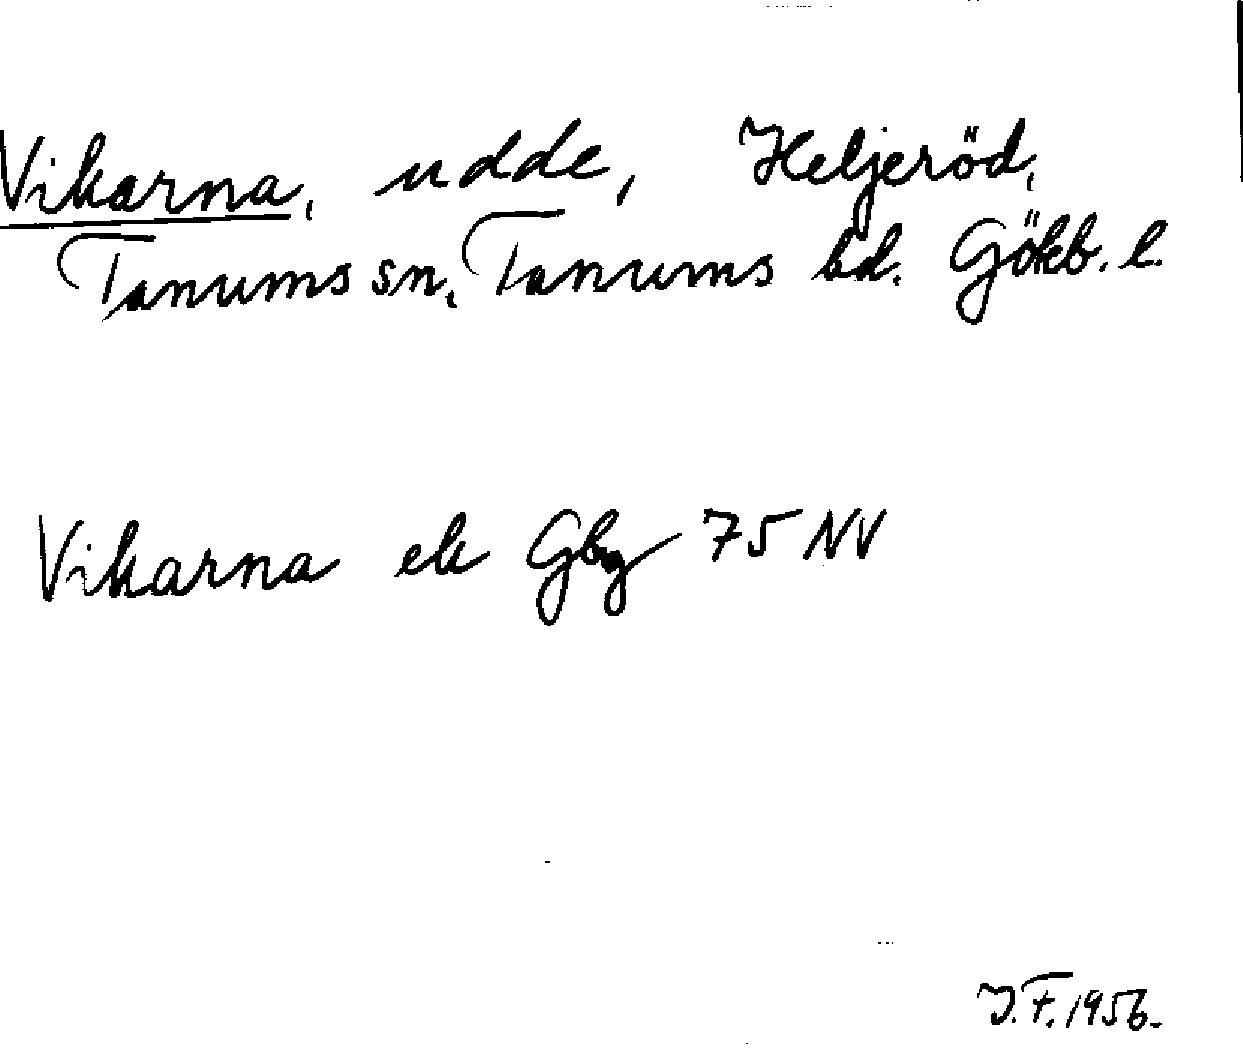 Vikarna, udde, Heljeröd,
Tanums sn, Tanums hd. Gökb. l.
Vikarna ek Gbg 75 NV
J.F. 1956.